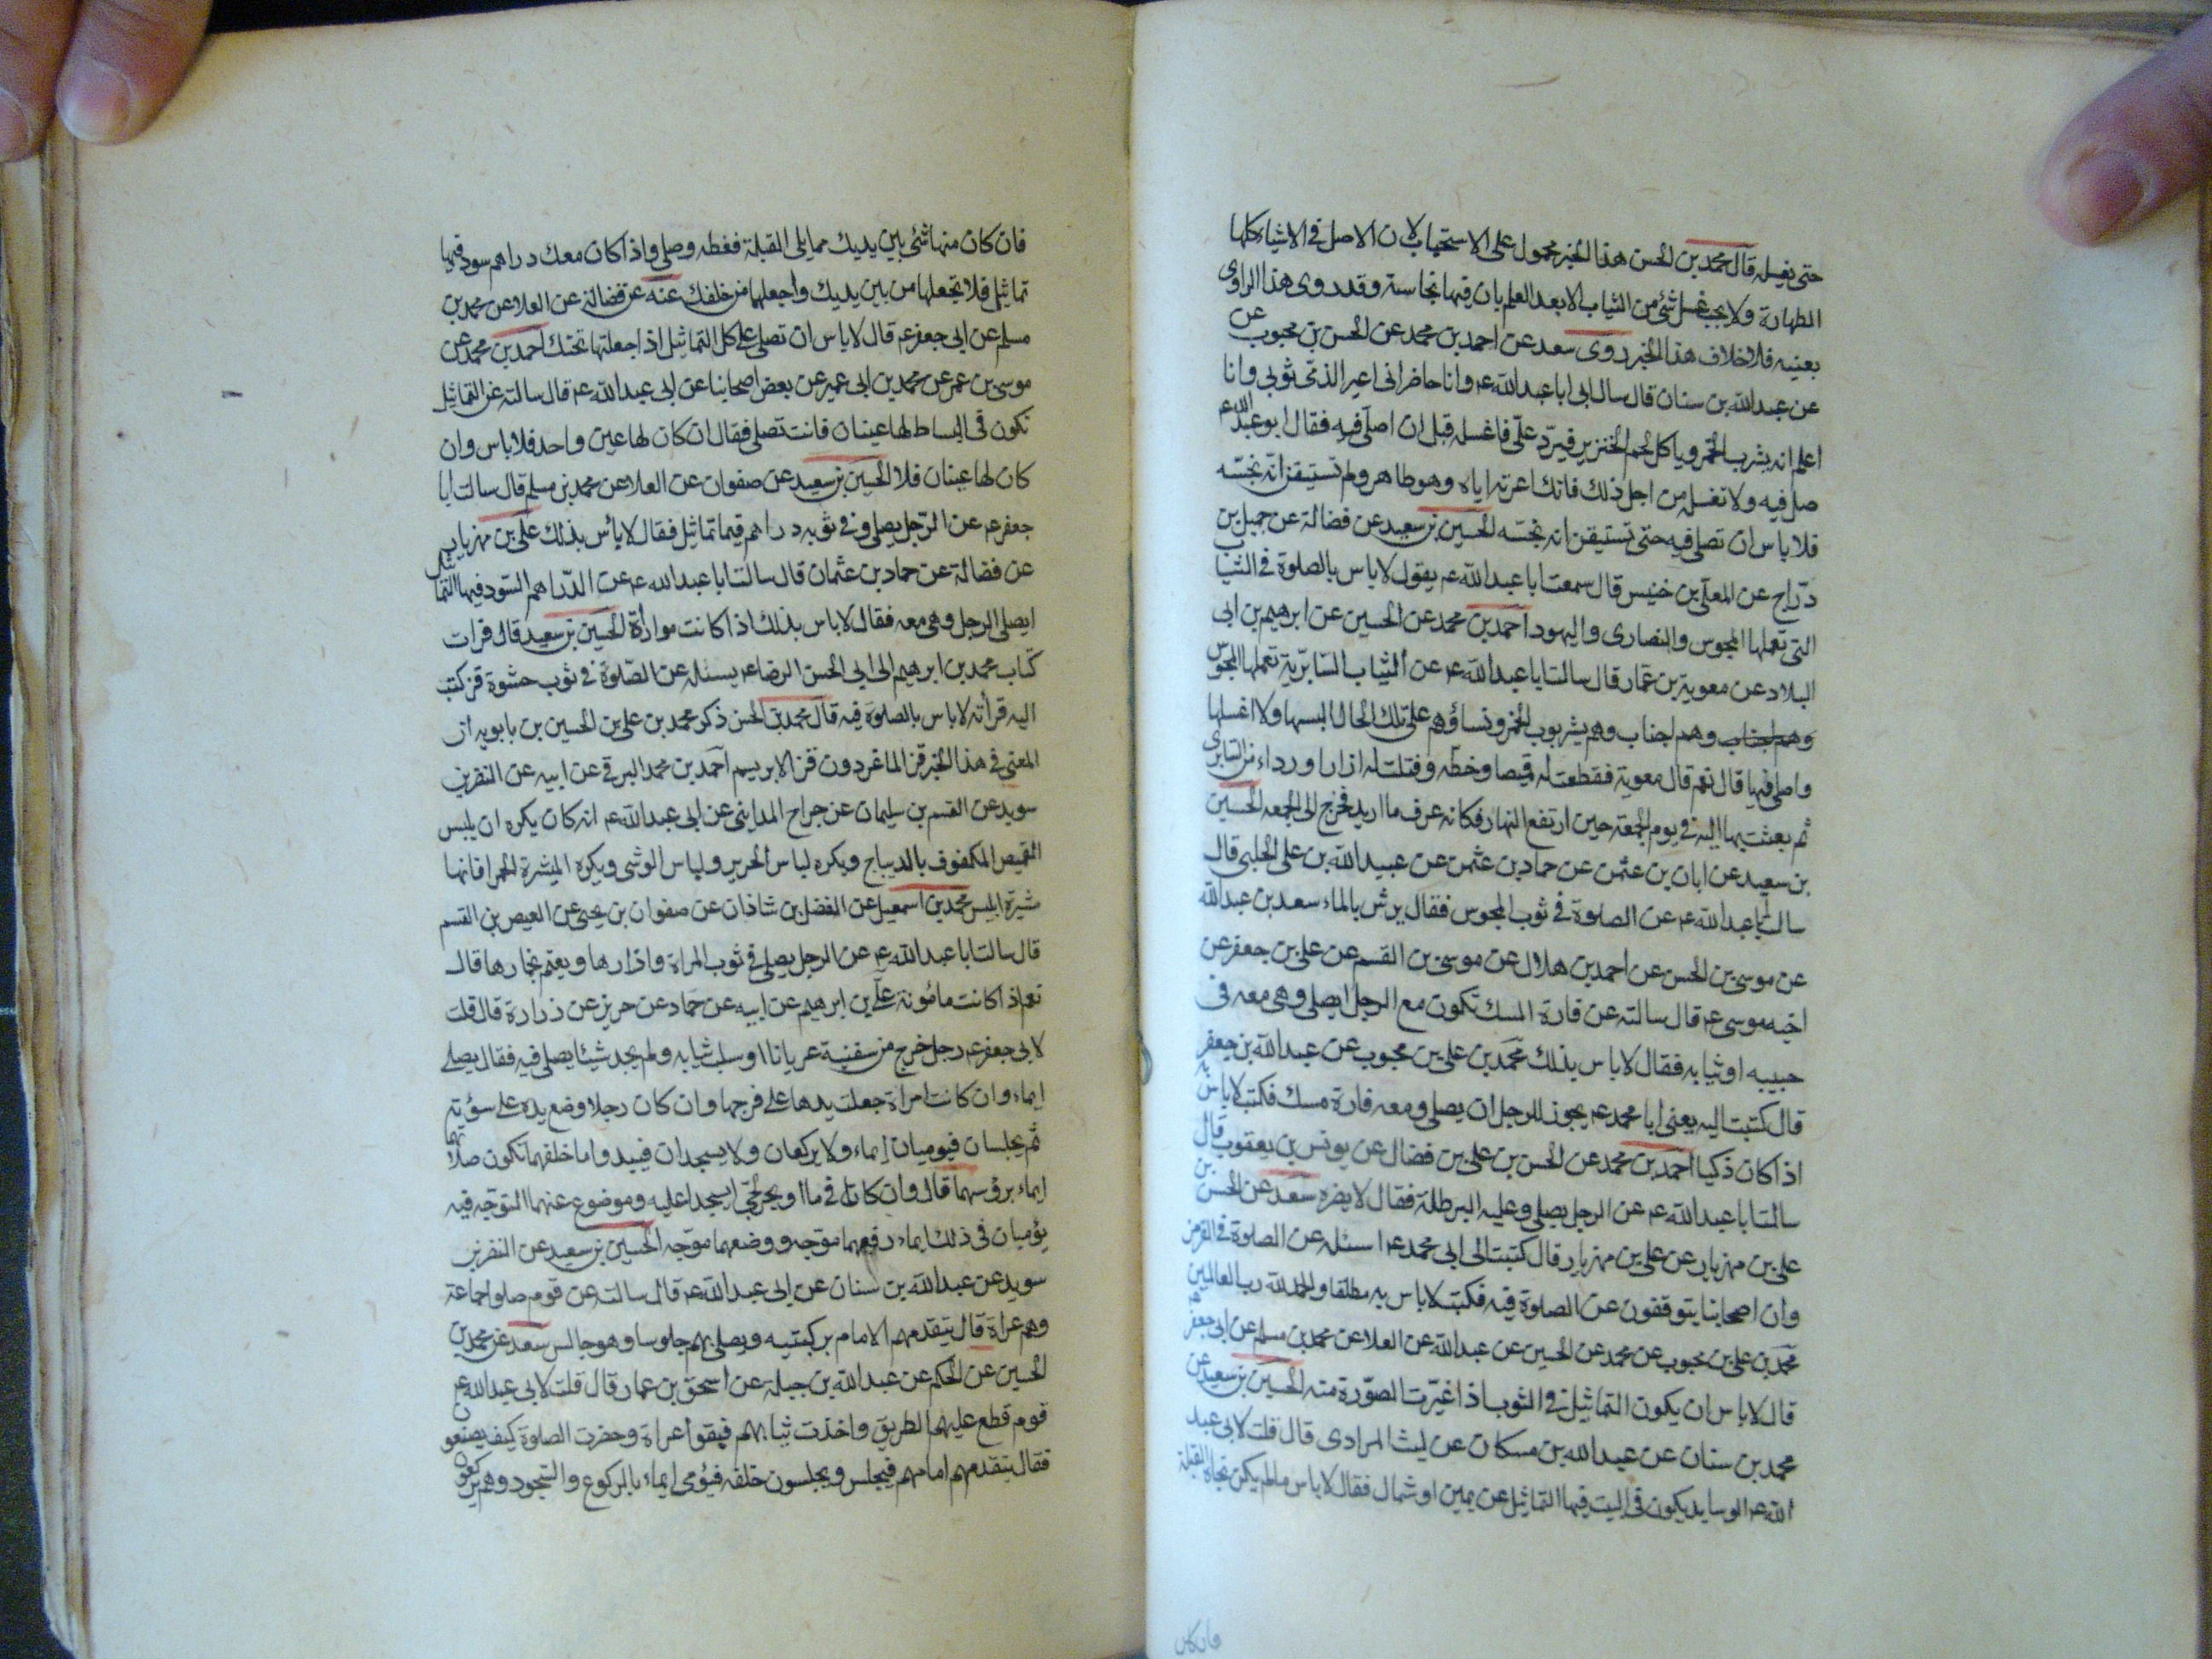 حتى يغسله قال محمد بن الحسن هذا الخبر محمول على الاستحباب لان الاصل في الاشياء كلها
الطهارة ولا يجب غسل شئ من الثياب الا بعد العلم بان فيها نجاسة وقد روى هذا الراوى
بعينه فلا خلاف هذا الخبر روى سعد عن احمد بن محمد عن الحسن بن محبوب عن
عن عبد الله بن سنان قال سال ابى ابا عبد الله عم وانا حاضر انى اعير الذمى ثوبى وانا
اعلم انه يشرب الخمر وياكل لحم الخنزير فيرد على فاغسله قبل ان اصلى فيه فقال ابو عبد الله عم
صل فيه ولا تغسله من اجل ذلك فانك اعرته اياه وهو طاهر ولم تستيقن انه نجسه
فلا باس ان تصلى فيه حتى تستيقن انه نجسه الحسين بن سعيد عن فضالة عن جميل بن
دراج عن المعلى بن خنيس قال سمعت ابا عبد الله عم يقول لا باس بالصلوة في الثياب
التى تعملها المجوس والنصارى واليهود احمد بن محمد عن الحسين عن ابرهيم بن ابى
البلاد عن معوية بن عمار قال سالت ابا عبد الله عم عن الثياب السابرية تعملها المجوس
وهم اجناب وهم اجناب وهم يشربون الخمر ونساؤهم على تلك الحال البسها ولا اغسلها
واصلى فيها قال نعم قال معوية فقطعت له قميصا وخطه وفتلت له ازارا ورداء من السابرى
ثم بعثت بها اليه في يوم الجمعة حين ارتفع النهار فكانه عرف ما اريد فخرج الى الجمعه الحسين
بن سعيد عن ابان بن عثمن عن حماد بن عثمن عن عبيد الله بن على الحلبى قال
سالت ابا عبد الله عم عن الصلوة في ثوب المجوس فقال يرش بالماء سعد بن عبد الله
عن موسى بن الحسن عن احمد بن هلال عن موسى بن القسم عن على بن جعفر عن
اخيه موسى عم قال سالته عن فارة المسك تكون مع الرجل ايصلى وهى معه في
جيبه او ثيابه فقال لا باس بذلك محمد بن على بن محبوب عن عبد الله بن جعفر
قال كتبت اليه يعنى ابا محمد عم يجوز للرجل ان يصلى ومعه فارة مسك فكتب لا باس به
اذا كان ذكيا احمد بن محمد عن الحسن بن على بن فضال عن يونس بن يعقوب قال
سالت ابا عبد الله عم عن الرجل يصلى وعليه البرطلة فقال لا يضره سعد عن الحسن بن
على بن مهزيار عن على بن مهزيار قال كتبت الى ابى محمد عم اسئله عن الصلوة في القرمز
وان اصحابنا يتوقفون عن الصلوة فيه فكتب لا باس به مطلقا والحمد لله رب العالمين
محمد بن على بن محبوب عن محمد عن الحسين عن عبد الله عن العلا عن محمد بن مسلم عن ابى جعفر عم
قال لا باس ان يكون التماثيل في الثوب اذا غيرت الصورة منه الحسين بن سعيد عن
محمد بن سنان عن عبد الله بن مسكان عن ليث المرادى قال قلت لابى عبد
الله عم الوسايد يكون في البيت فيها التماثيل عن يمين او شمال فقال لا باس ما لم يكن تجاه القبلة
فان كان
فان كان منها شئ بين يديك مما يلى القبلة فغطه وصلى واذا كان معك دراهم سود فيها
تماثيل فلا تجعلها من بين يديك واجعلها من خلفك عنه عن فضالة عن العلا عن محمد بن
مسلم عن ابى جعفر عم قال لا باس ان تصلى على كل التماثيل اذا جعلتها تحتك احمد بن محمد عن
موسى بن عمر عن محمد بن ابى عمير عن بعض اصحابنا عن ابى عبد الله عم قال سالته عن التماثيل
تكون في البساط لها عينان وانت تصلى فقال ان كان لها عين واحد فلا باس وان
كان لها عينان فلا الحسين بن سعيد عن صفوان عن العلا عن محمد بن مسلم قال سالت ابا
جعفر عم عن الرجل يصلى وفي ثوبه دراهم فيها تماثيل فقال لا بأس بذلك على بن مهزيار
عن فضالة عن حماد بن عثمان قال سالت ابا عبد الله عم عن الدراهم السود فيها التماثيل
ايصلى الرجل وهى معه فقال لا باس بذلك اذا كانت موارأة الحسين بن سعيد قال قرات
كتاب محمد بن ابرهيم الى ابى الحسن الرضا عم يسئله عن الصلوة في ثوب حشوة قز كتب
اليه قرأته لا باس بالصلوة فيه قال محمد بن الحسن ذكر محمد بن على بن الحسين بن بابويه ان
المعنى في هذا الخبر قز الماعز دون قز الابريسم احمد بن محمد البرقى عن ابيه عن النضر بن
سويد عن القسم بن سليمان عن جراح المداينى عن ابى عبد الله عم انه كان يكره ان يلبس
القميص المكفوف بالديباج ويكره لباس الحرير ولباس الوشى ويكره الميثرة الحمرا فانها
ميثرة ابليس محمد بن اسمعيل عن الفضل بن شاذان عن صفوان بن يحيى عن العيص بن القسم
قال سالت ابا عبد الله عم عن الرجل يصلى في ثوب المراة وازارها ويعتم بخمارها قال
نعم اذا كانت مامونة على بن ابرهيم عن ابيه عن حماد عن حريز عن زرارة قال قلت
لابى جعفر عم رجل خرج من سفينة عريانا او سلب ثيابه ولم يجد شيئا يصلى فيه فقال يصلى
ايماء وان كانت امراة جعلت يدها على فرجها وان كان رجلا وضع يده على سؤته
ثم يجلسان فيوميان ايماء ولا يركعان ولا يسجدان فيبدو ما خلفهما تكون صلاتهما
ايماء برؤسهما قال وان كانا في ما او بحر لجى لم يسجدا عليه وموضوع عنهما التوجه فيه
يؤميان في ذلك ايماء رفعهما موجه ووضعهما موجه الحسين بن سعيد عن النضر بن
سويد عن عبد الله بن سنان عن ابى عبد الله عم قال سالته عن قوم صلوا جماعة
وهم عراة قال يتقدمهم الامام بركبتيه ويصلى بهم جلوسا وهو جالس سعد عن محمد بن
الحسين عن الحكم عن عبد الله بن جبلة عن اسحق بن عمار قال قلت لابى عبد الله عم
قوم قطع عليهم الطريق واخذت ثيابهم فبقوا عراة وحضرت الصلوة كيف يصنعون
فقال يتقدمهم امامهم فيجلس ويجلسون خلفه فيؤمى ايماء بالركوع والسجود وهم يركعون